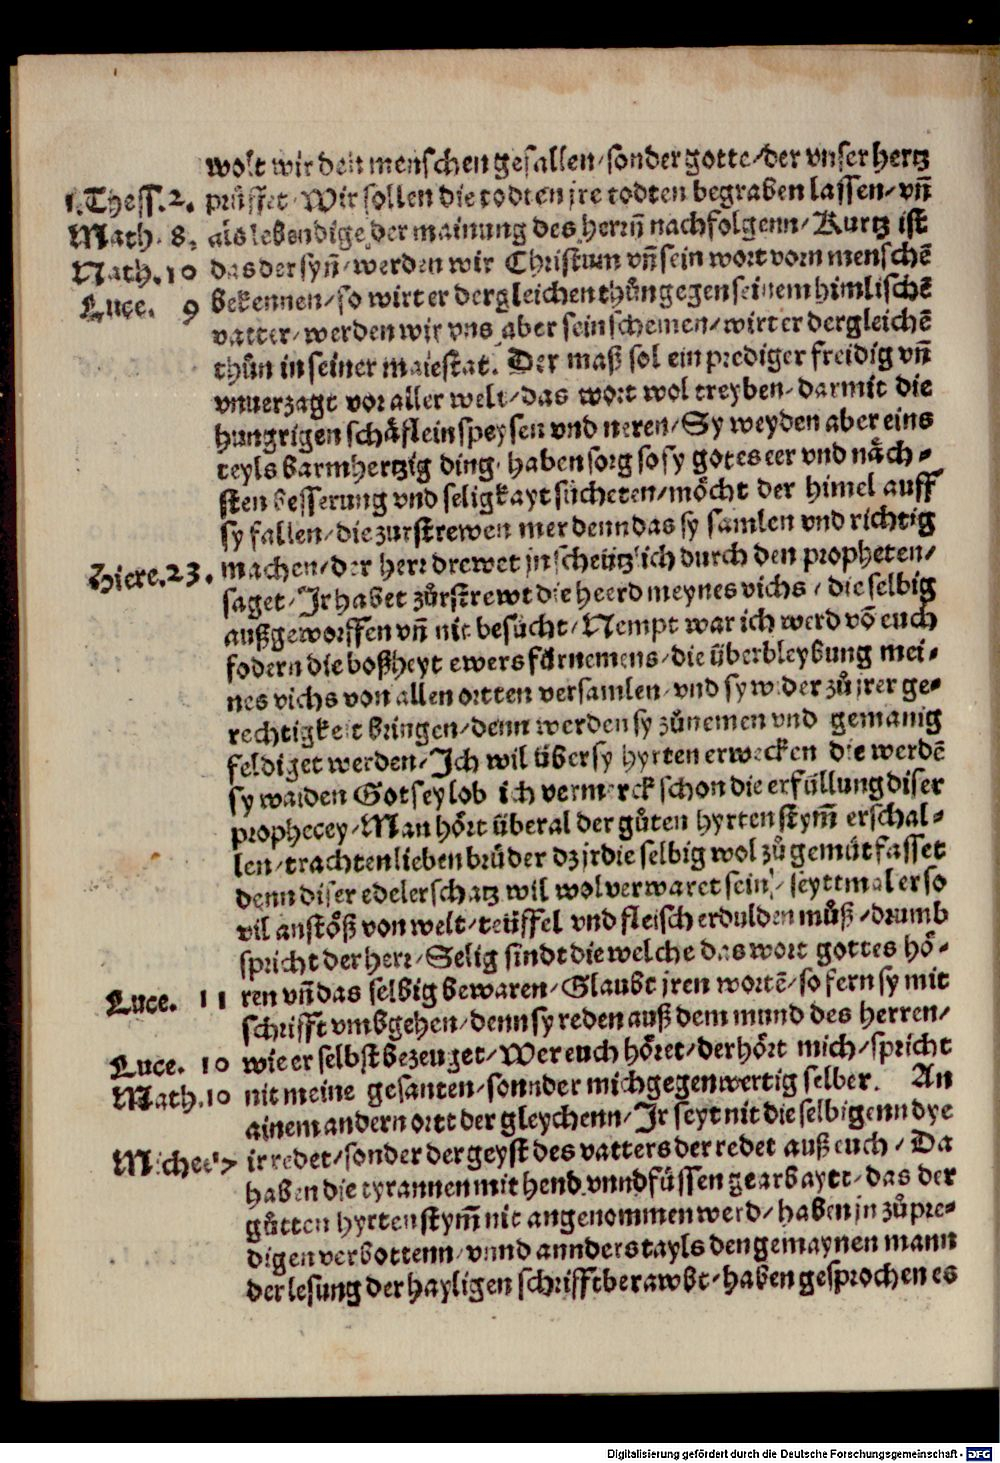 wolt wir den menschen gefallen/ sonder gotte/ der vnser hertz
1.Thess.2. prüffet/ Wir sollen die todten jre todten begraben lassen/ vñ
Math. 8. als lebendige der mainung des herrñ nachfolgenn/ Kurtz ist
Math.10 das der syñ/ werden wir Christum vñ sein wort vorn menschē
Luce. 9 bekennen/ so wirt er dergleichen thůn gegen seinem himlischē
vatter/ werden wir vns aber sein schemen/ wirt er dergleichē
thůn in seiner maiestat. Der maß sol ein prediger freidig vñ
vnuerzagt vor aller welt/ das wort wol treyben/ darmit die
hungrigen schäflein speysen vnd neren/ Sy weyden aber eins
teyls barmhertzig ding/ haben sorg so sy gotes eer vnd näch-
sten besserung vnd seligkayt sücheten/ möcht der himel auff
sy fallen/ die zurstrewen mer denn das sy samlen vnd richtig
Hiere.23. machen/ der herr drewet jn scheützlich durch den propheten/
saget/ Jr habet zůrstrewt die heerd meynes vichs/ die selbig
außgeworffen vñ nit besücht/ Nempt war ich werd vō euch
fodern die boßheyt ewers fürnemens/ die überbleybung mei-
nes vichs von allen ortten versamlen/ vnd sy wider zů jrer ge-
rechtigkeit bringen/ denn werden sy zůnemen vnd gemanig
feldiget werden/ Jch wil über sy hyrten erwecken die werdē
sy waiden Got sey lob ich vermerck schon die erfüllung diser
prophecey/ Man hört überal der gůten hyrten stym̄ erschal-
len/ trachten lieben brüder dz jr die selbig wol zů gemüt fasset
denn diser edeler schatz wil wol verwaret sein/ seyttmal er so
vil anstöß von welt/ teüffel vnd fleisch erdulden můß/ drumb
spricht der herr/ Selig sindt die welche das wort gottes hö-
Luce. 11 ren vñ das selbig bewaren/ Glaubt jren wortē/ so fern sy mit
schrifft vmbgehen/ denn sy reden auß dem mund des herren/
Luce. 10 wie er selbst bezeuget/ Wer euch höret/ der hört mich/ spricht
Math.10 nit meine gesanten/ sonnder mich gegenwertig selber. An
ainem andern ortt der gleychenn/ Jr seyt nit die selbigenn dye
Michee 7 ir redet/ sonder der geyst des vatters der redet auß euch/ Da
haben die tyrannen mit hend vnnd füssen gearbaytt/ das der
gůtten hyrten stym̄ nit angenommen werd/ haben jn zů pre-
digen verbottenn/ vnnd annders tayls den gemaynen mann
der lesung der hayligen schrifft berawbt/ haben gesprochen es
Digitalisierung gefördert durch die Deutsche Forschungsgemeinschaft - DFG